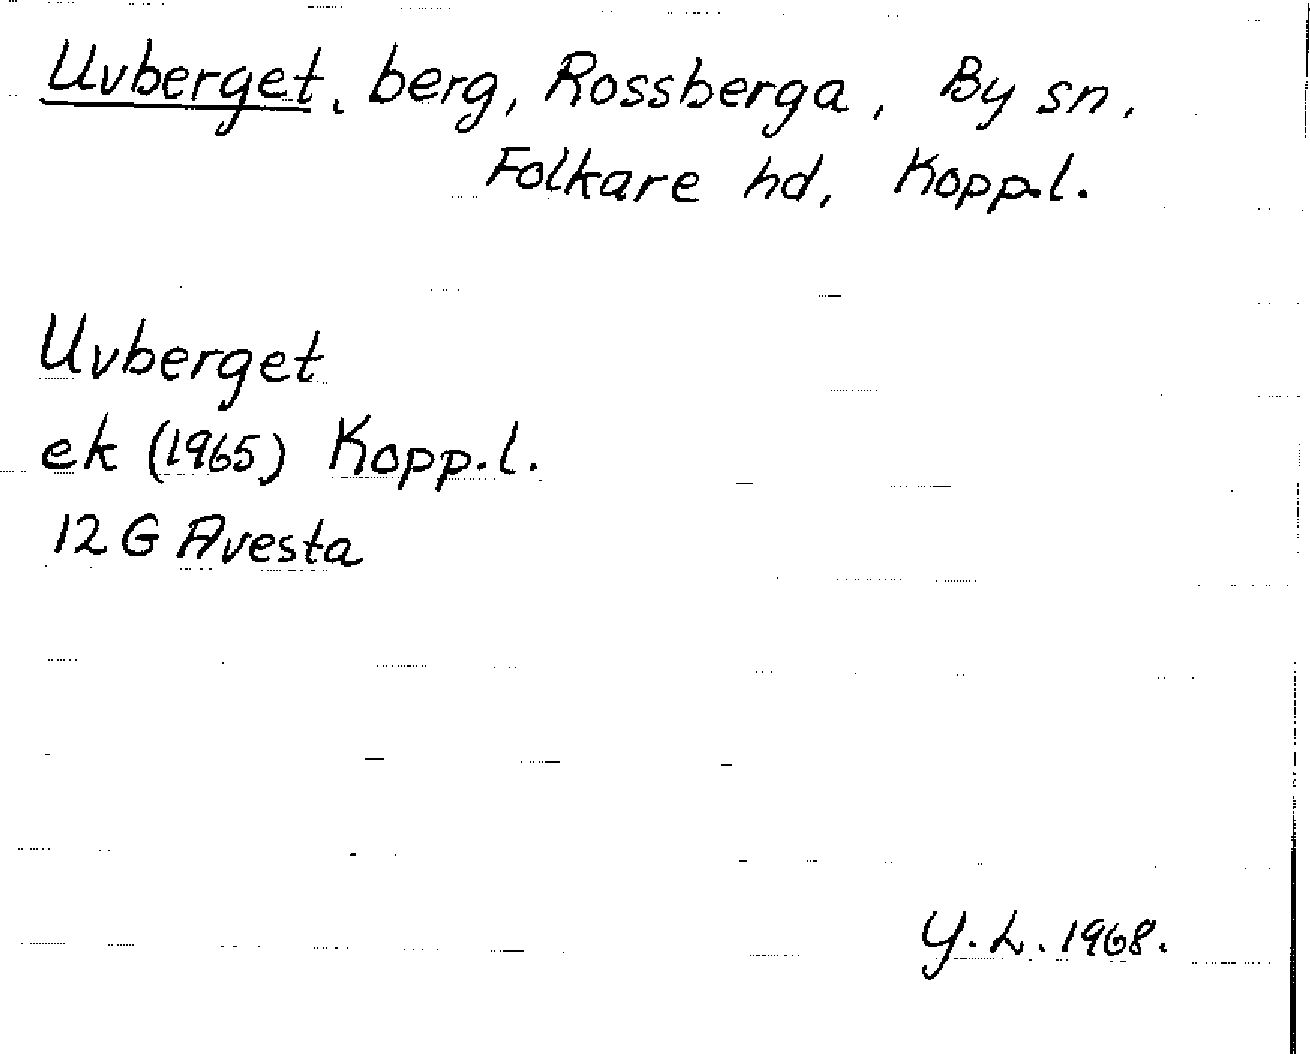 Uvberget, berg, Rossberga, By sn,
Folkare hd, Kopp.l.
Uvberget
ek (1965) Kopp.l.
12 G Avesta
Y.L. 1968.